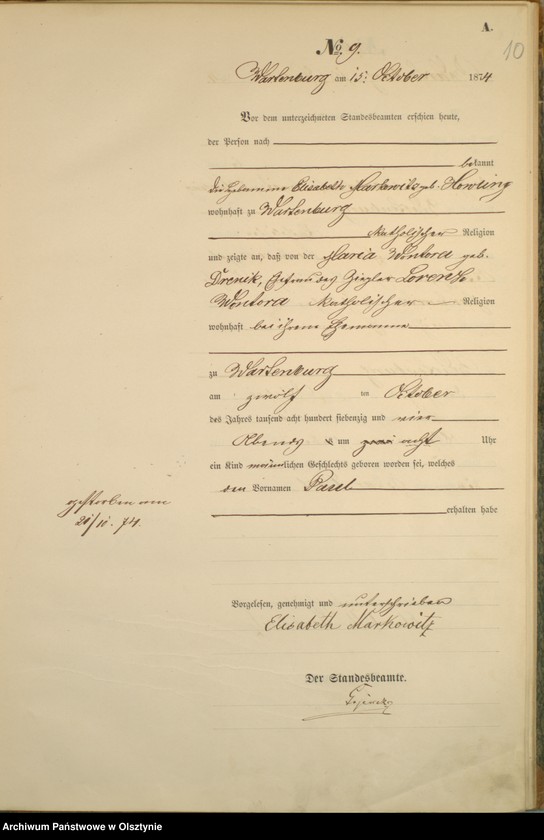 A.
10
No 9.
Wartenburg am 15. October 1874
Vor dem unterzeichneten Standesbeamten erschien heute,
der Person nach
bekannt
die Hebamme Elisabeth Markowitz geb. Howling
wohnhaft zu Wartenburg
katholischer Religion
und zeigte an, daß von der Maria Wontora geb.
Drenik, Ehefrau des Ziegler Lorenz
Wontora katholischer Religion
wohnhaft bei ihrem Ehemanne
zu Wartenburg
am zwölf ten October
des Jahres tausend acht hundert siebenzig und vier
Abends um acht Uhr
ein Kind männlichen Geschlechts geboren worden sei, welches
den Vornamen Paul
erhalten habe
gestorben am
21/11. 74.
Vorgelesen, genehmigt und unterschrieben
Elisabeth Markowitz
Der Standesbeamte.
Archiwum Państwowe w Olsztynie